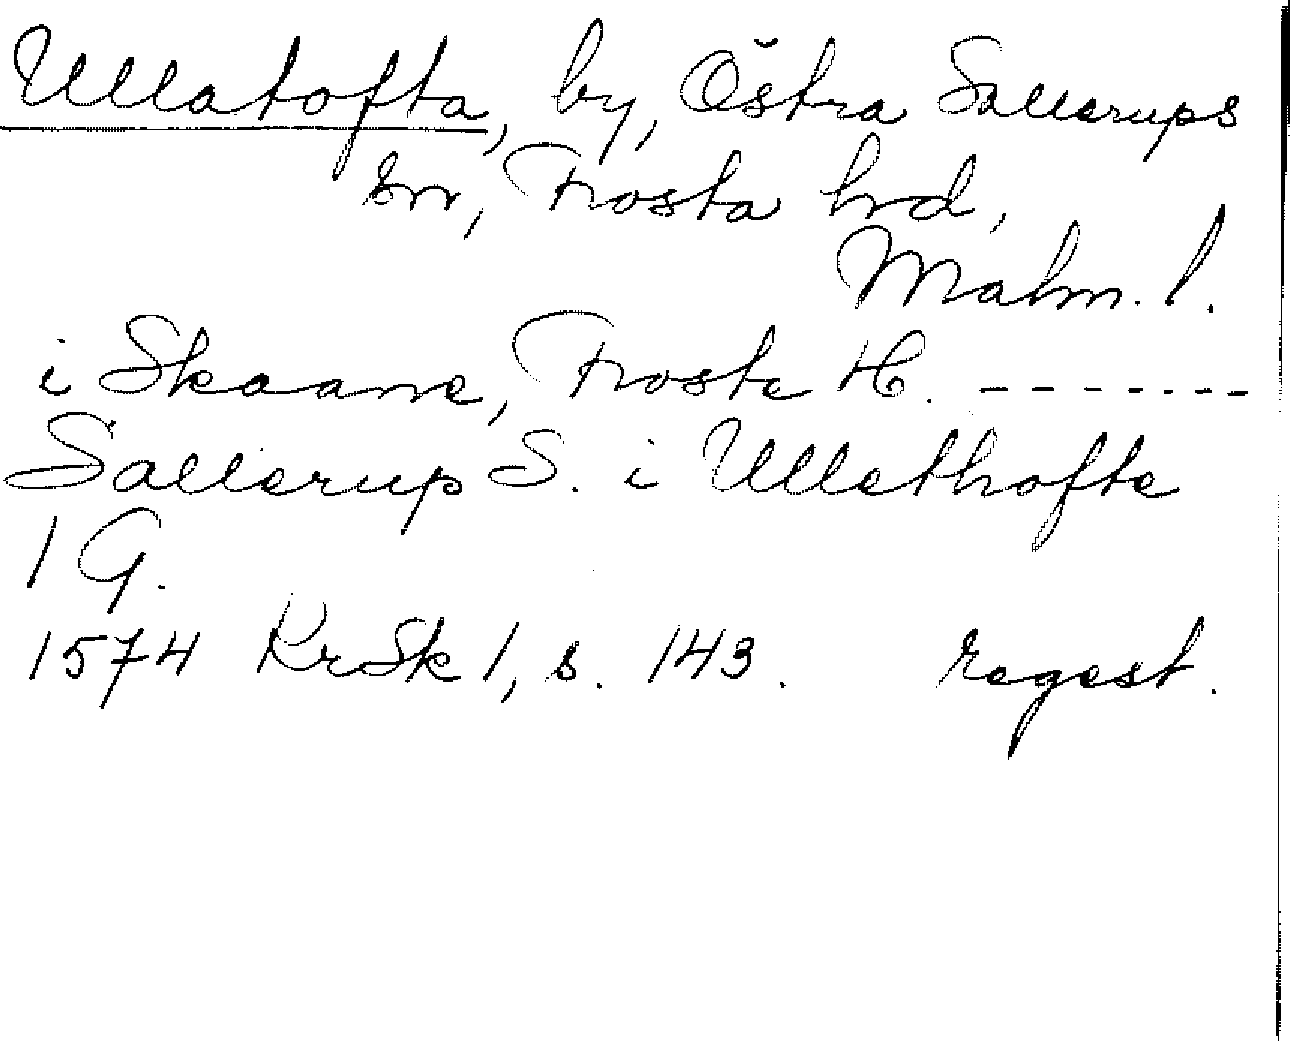 Ullatofta, by, Östra Sallerups
sn, Frosta hrd,
Malm. l.
i Skaane, Froste H. -------
Sallerup S. i Ullethofte
1 G.
1574 KrSk 1, s. 143. regest.